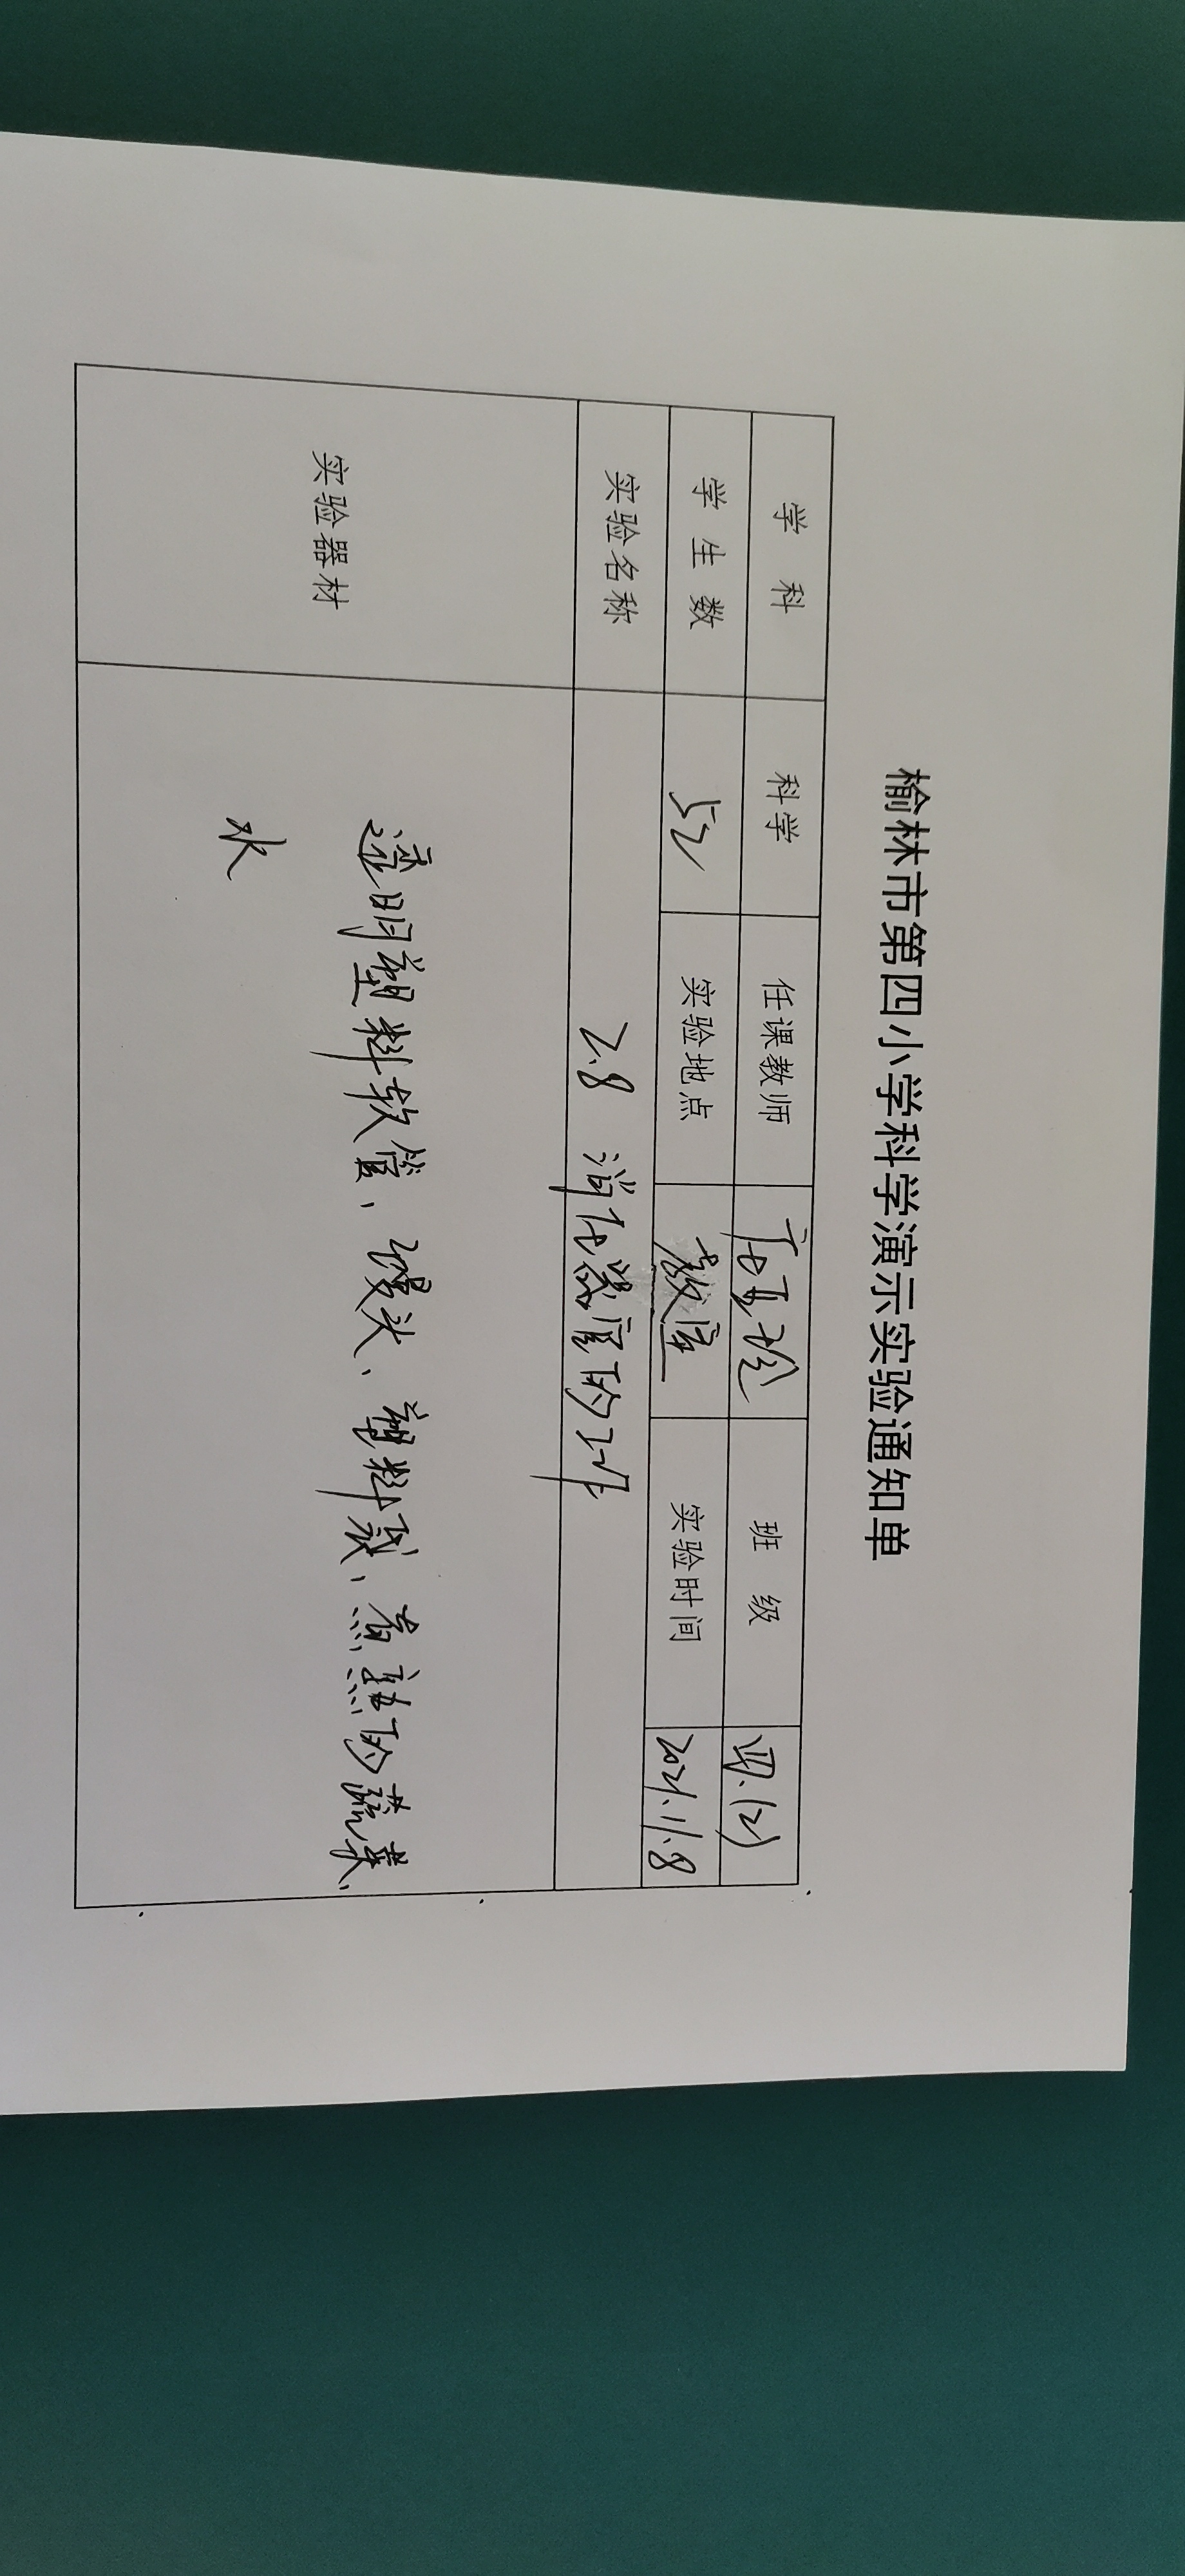 榆林市第四小学科学演示实验通知单
学 科 科学 任课教师 班 级 四.(2)
学 生 数 52 实验地点 教室 实验时间 2021.11.8
实验名称 2.8 消化器官的工作
实验器材 透明塑料软管、馒头、塑料袋、煮熟的蔬菜、
水